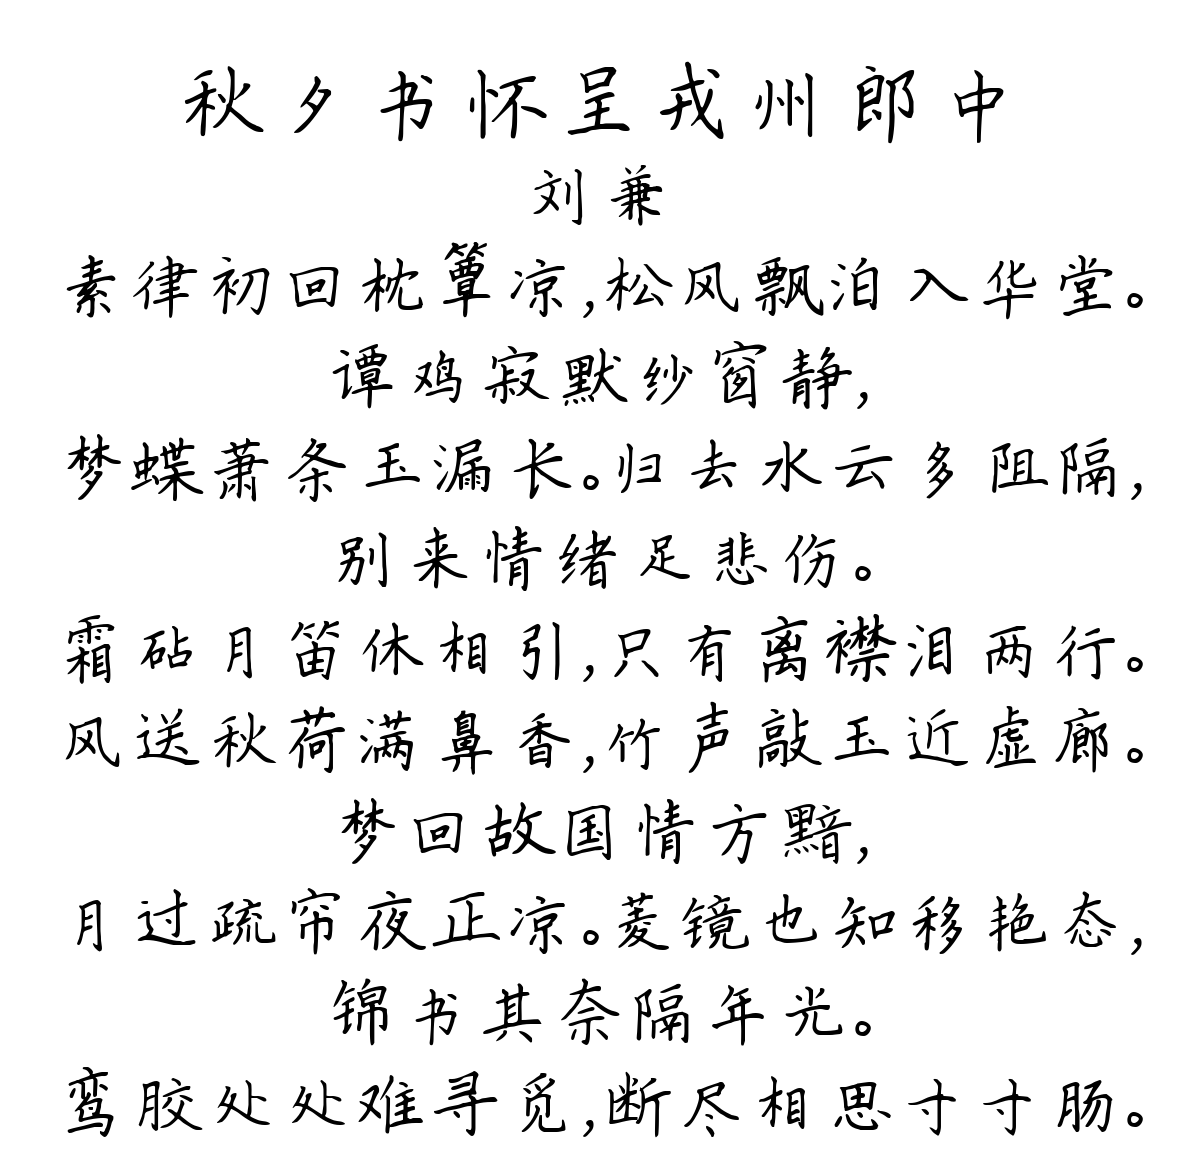 秋夕书怀呈戎州郎中
刘兼
素律初回枕簟凉,松风飘泊入华堂。
谭鸡寂默纱窗静,
梦蝶萧条玉漏长。归去水云多阻隔,
别来情绪足悲伤。
霜砧月笛休相引,只有离襟泪两行。
风送秋荷满鼻香,竹声敲玉近虚廊。
梦回故国情方黯,
月过疏帘夜正凉。菱镜也知移艳态,
锦书其奈隔年光。
鸾胶处处难寻觅,断尽相思寸寸肠。